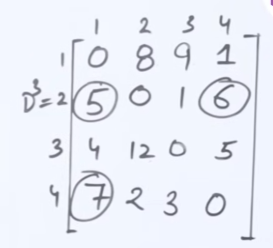 1 2 3 4
1 0 8 9 1
D³=2 5 0 1 6
3 4 12 0 5
4 7 2 3 0